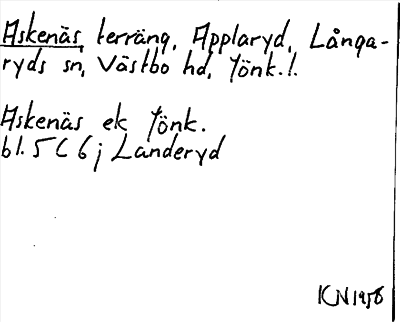 Askenäs terräng, Applaryd, Långa-
ryds sn, Västbo hd, Jönk.l.
Askenäs ek Jönk.
bl. 5 C 6 j Landeryd
KN 1958